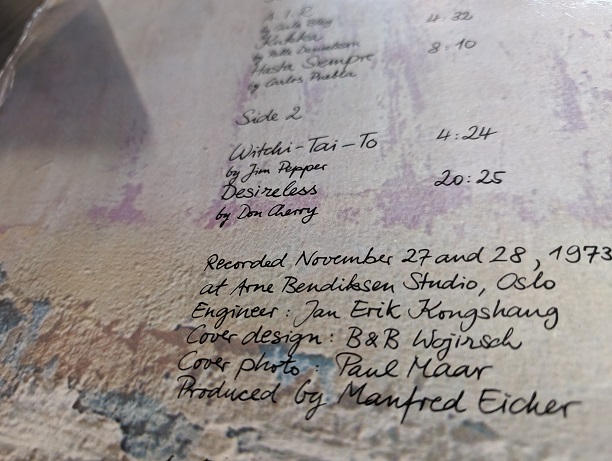 A.I.R. 4:32
by Carla Bley
Kukka 8:10
by Palle Danielsson
Hasta Siempre
by Carlos Puebla
Side 2
Witchi-Tai-To 4:24
by Jim Pepper
Desireless 20:25
by Don Cherry
Recorded November 27 and 28, 1973
at Arne Bendiksen Studio, Oslo
Engineer: Jan Erik Kongshaug
Cover design: B&B Wojirsch
Cover photo: Paul Maar
Produced by Manfred Eicher